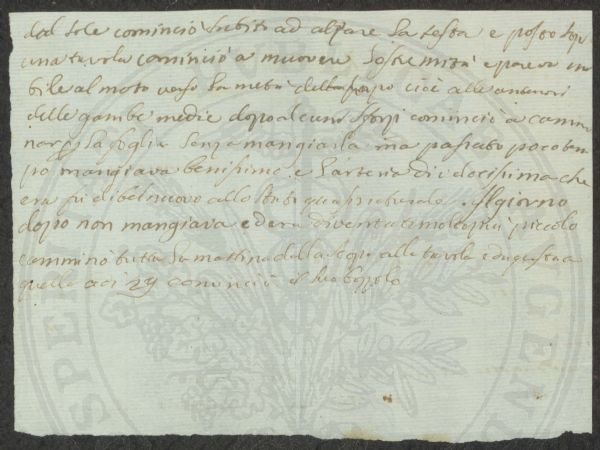 dal sole cominciò subito ad alzare la testa e posto sopr
una tavola cominciò a muovere l'estremità e pareva
bile al moto verso la metà del corpo cioè alle
delle gambe medie dopo alcuni sforzi cominciò a cammi
nar la foglia senza mangiarla ma passato poco tem
po mangiava benissimo e l'arteria
era di bel nuovo allo stato quasi naturale. Il giorno
dopo non mangiava ed era diventato molto più piccolo
camminò tutta la mattina della alla tavola e da questa a
quella ad 29 cominciò il suo bozzolo